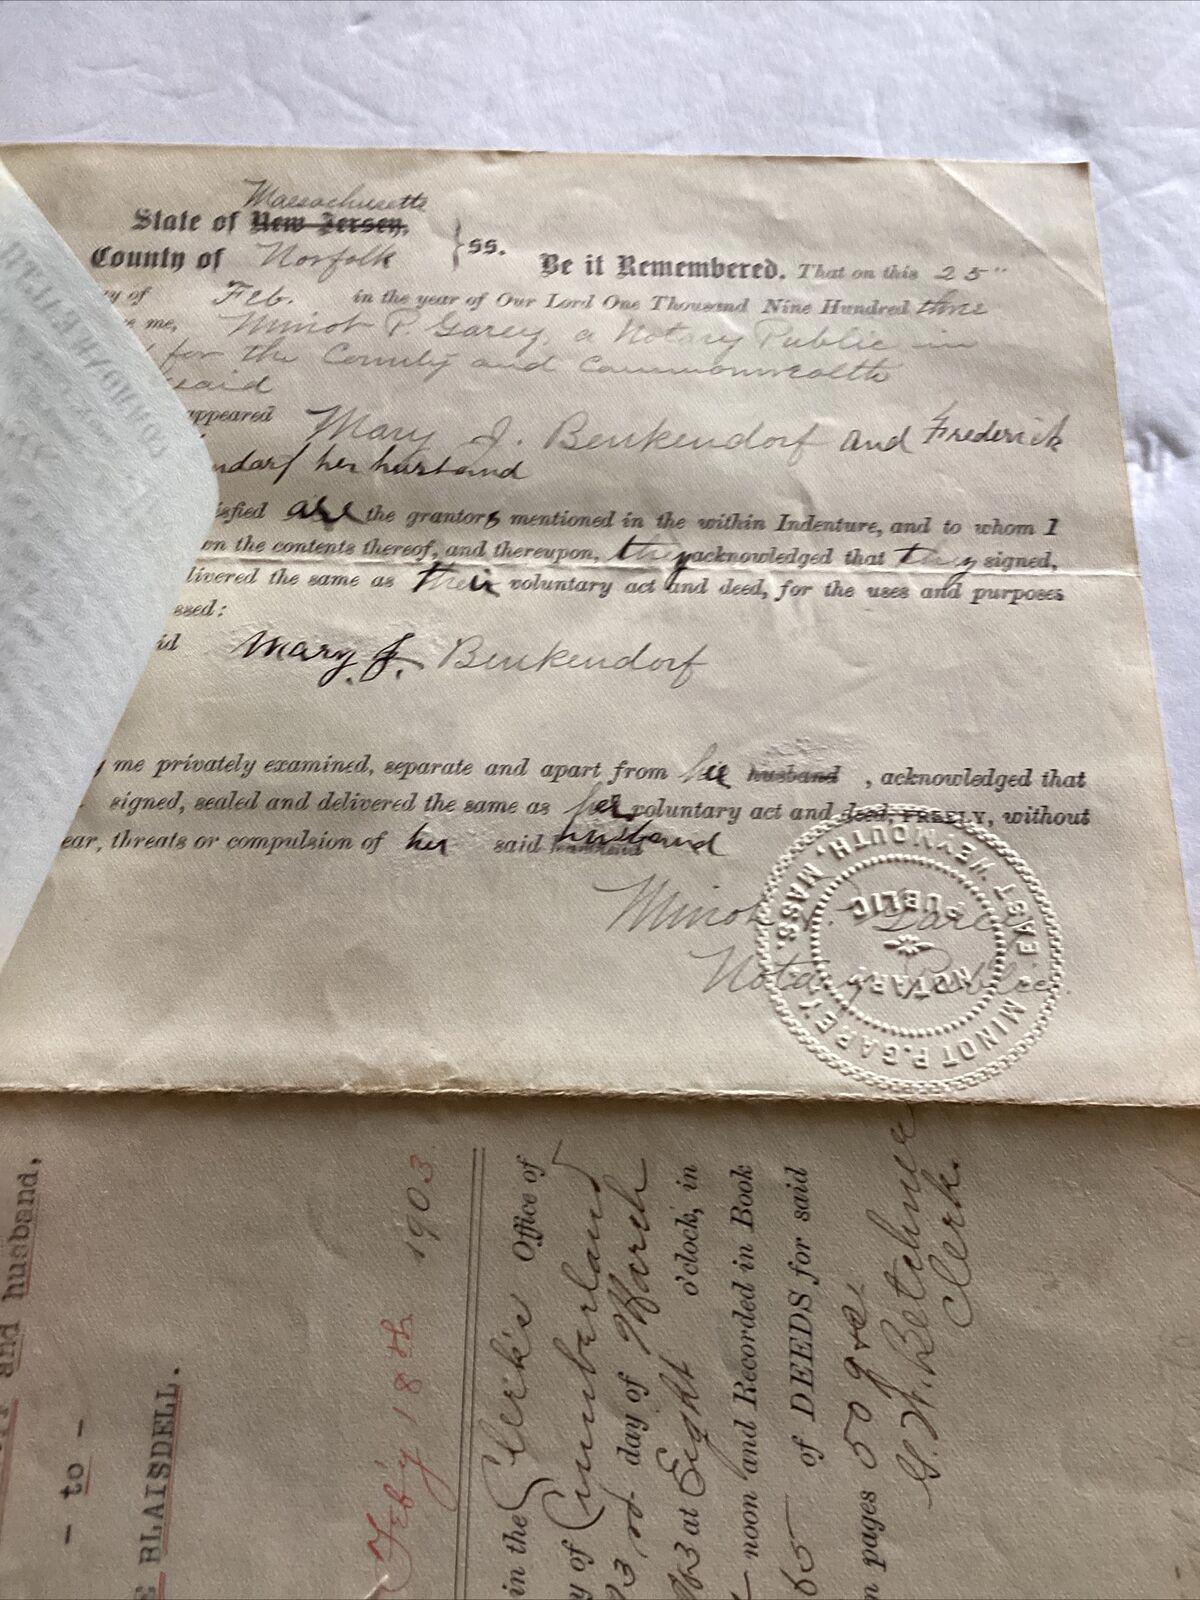 Massachusetts
State of New Jersey, } ss.
County of Norfolk
Be it Remembered, That on this 25"
of Feb. in the year of Our Lord One Thousand Nine Hundred three
me, Minot P. Garey, a Notary Public in
for the County and Commonwealth
said
appeared Mary J. Benkendorf and Frederick
ndorf her husband
isfied are the grantors mentioned in the within Indenture, and to whom I
on the contents thereof, and thereupon, they acknowledged that they signed,
livered the same as their voluntary act and deed, for the uses and purposes
ssed:
id Mary J. Benkendorf
me privately examined, separate and apart from her husband, acknowledged that
signed, sealed and delivered the same as her voluntary act and deed, FREELY, without
ear, threats or compulsion of her said husband
Minot P. Garey
Notary Public.
MINOT P. GAREY. EAST WEYMOUTH, MASS.
NOTARY PUBLIC
and husband,
- to -
BLAISDELL.
Feb'y 18th 1903
in the Clerk's Office of
of Cumberland
3rd day of March
3 at Eight o'clock, in
noon and Recorded in Book
65 of DEEDS for said
n pages 509 &c.
Betchner
Clerk.